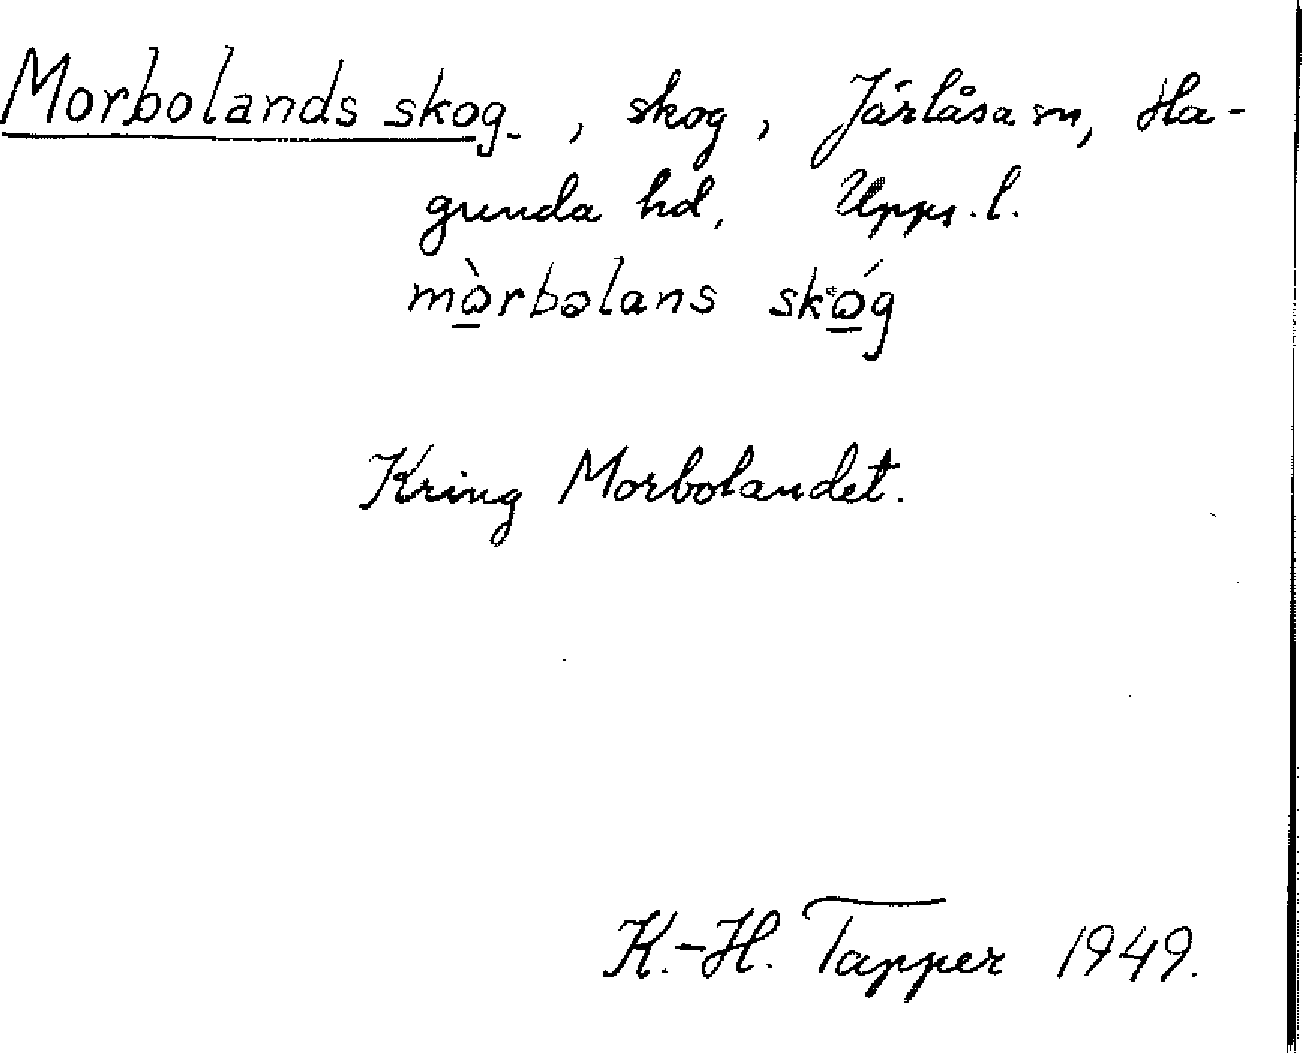 Morbolands skog, skog, Järlåsa sn, Ha-
gunda hd, Upps. l.
mòrbəlans skóg
Kring Morbolandet.
K.-H. Tapper 1949.